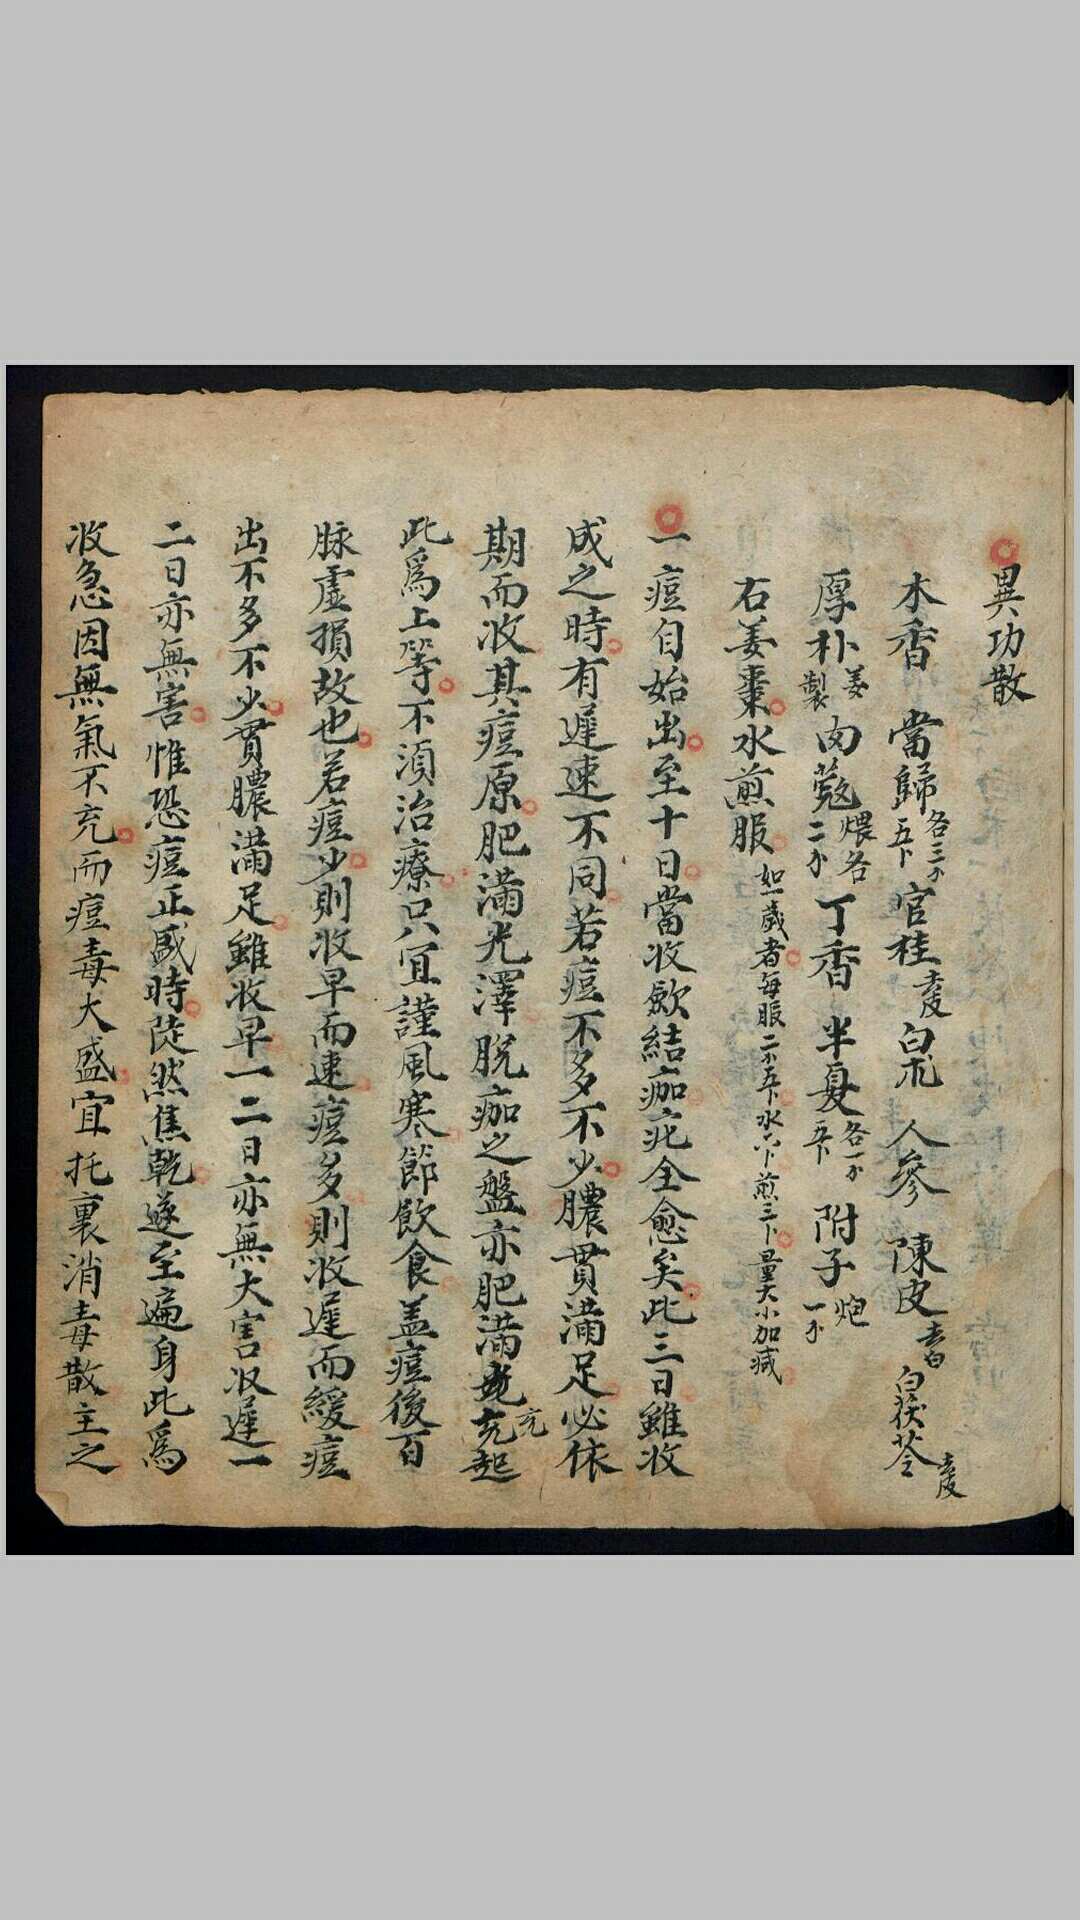 異功散
木香 當歸各三分五卜 官桂去皮 白朮 人參 陳皮去白 白茯苓去皮
厚朴姜製 肉蔻煨各二分 丁香 半夏各一分五卜 附子炮一分
右姜棗水煎服如一歲者每服二分五卜水六卜煎三卜量大小加減
一痘自始出至十日當收歛結痂疕全愈矣此三日雖收
成之時有遲速不同若痘不多不少膿貫滿足必依
期而收其痘原肥滿光澤脫痂之盤亦肥滿充起
此爲上等不須治療只宜謹風寒節飲食盖痘後百
脉虛損故也若痘少則收早而速痘多則收遲而緩痘
出不多不少貫膿滿足雖收早一二日亦無大害收遲一
二日亦無害惟恐痘正盛時陡然焦乾遂至遍身此爲
收急因無氣不充而痘毒大盛宜托裏消毒散主之